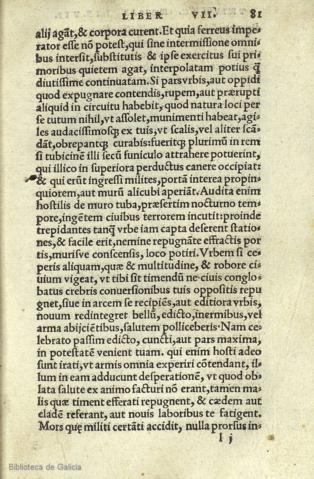 LIBER VII. 81
alij agãt, & corpora curent. Et quia ferreus impe
rator esse nõ potest, qui sine intermissione omni
bus intersit, substitutis & ipse exercitus sui pri
moribus quietem agat, interpolatam potius q̃
diutissime continuatam. Si pars vrbis, aut oppidi
quod expugnare contendis, rupem, aut prærupti
aliquid in circuitu habebit, quod natura loci per
se tutum nihil, vt assolet, munimenti habeat, agi
les audacissimosq; ex tuis, vt scalis, vel aliter scã
dãt, obrepantq; curabis: fueritq; plurimũ in rem
si tubicinẽ illi secũ funiculo attrahere potuerint,
qui illico in superiora perductus canere occipiat:
& qui erũt ingressi milites, portã interea propin
quiorem, aut murũ alicubi aperiãt. Audita enim
hostilis de muro tuba, præsertim nocturno tem
pore, ingẽtem ciuibus terrorem incutit: proinde
trepidantes tanq̃ vrbe iam capta deserent statio
nes, & facile erit, nemine repugnãte effractis por
tis, murisve conscensis, loco potiri. Vrbem si ce
peris aliquam, quæ & multitudine, & robore ci
uium vigeat, vt tibi sit timendũ ne ciuis conglo
batus crebris conuersionibus tuis oppositis repu
gnet, siue in arcem se recipiẽs, aut editiora vrbis,
nouum redintegret bellũ, edicto, inermibus, vel
arma abijciẽtibus, salutem polliceberis. Nam ce
lebrato passim edicto, cuncti, aut pars maxima,
in potestatẽ venient tuam. qui enim hosti adeo
sunt irati, vt armis omnia experiri cõtendant, il
lum in eam adducunt desperationẽ, vt quod ob
lata salute ex animo facturi nõ erant, tamen ma
lis quæ timent efferati repugnent, & cædem aut
cladẽ referant, aut nouis laboribus te fatigent.
Mors quę militi certãti accidit, nulla prorsus in
I j
Biblioteca de Galicia